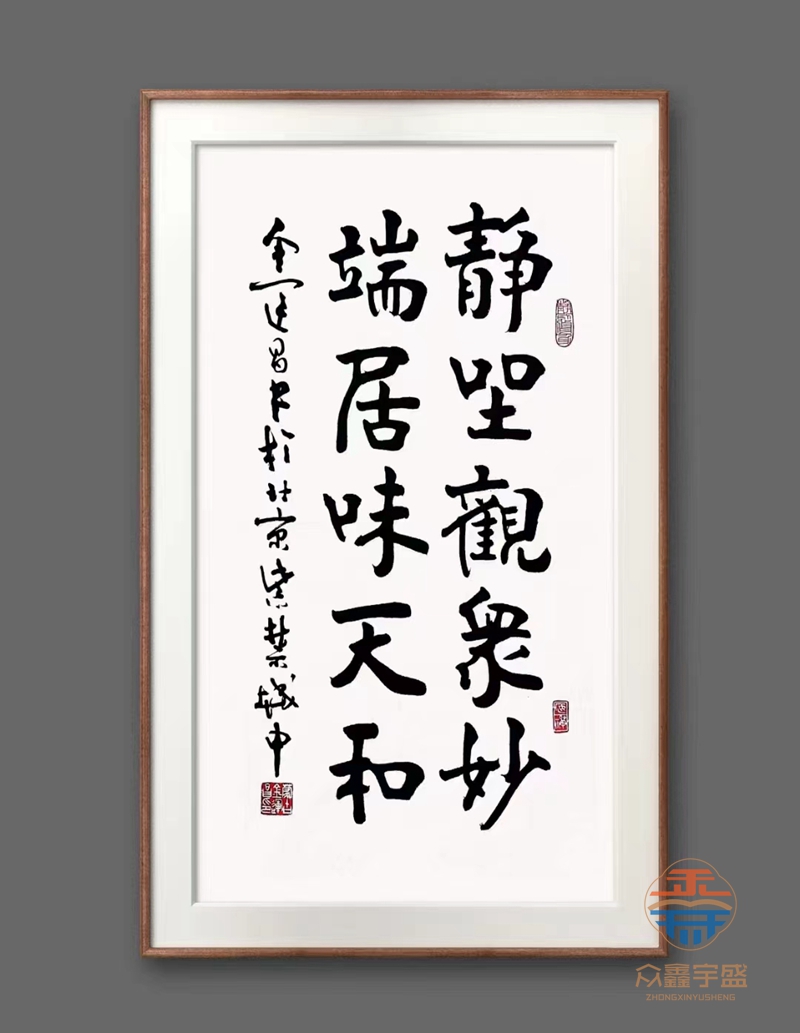 静坐觀衆妙
端居味天和
金運昌书於北京紫禁城中
众鑫宇盛
ZHONGXINYUSHENG